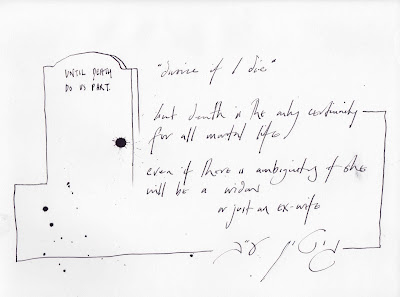 UNTIL DEATH
DO US PART.
"divorce if I die"
but death is the only certainty
for all mortal life
even if there is ambiguity if she
will be a widow
or just an ex-wife
גיטין ע"ב